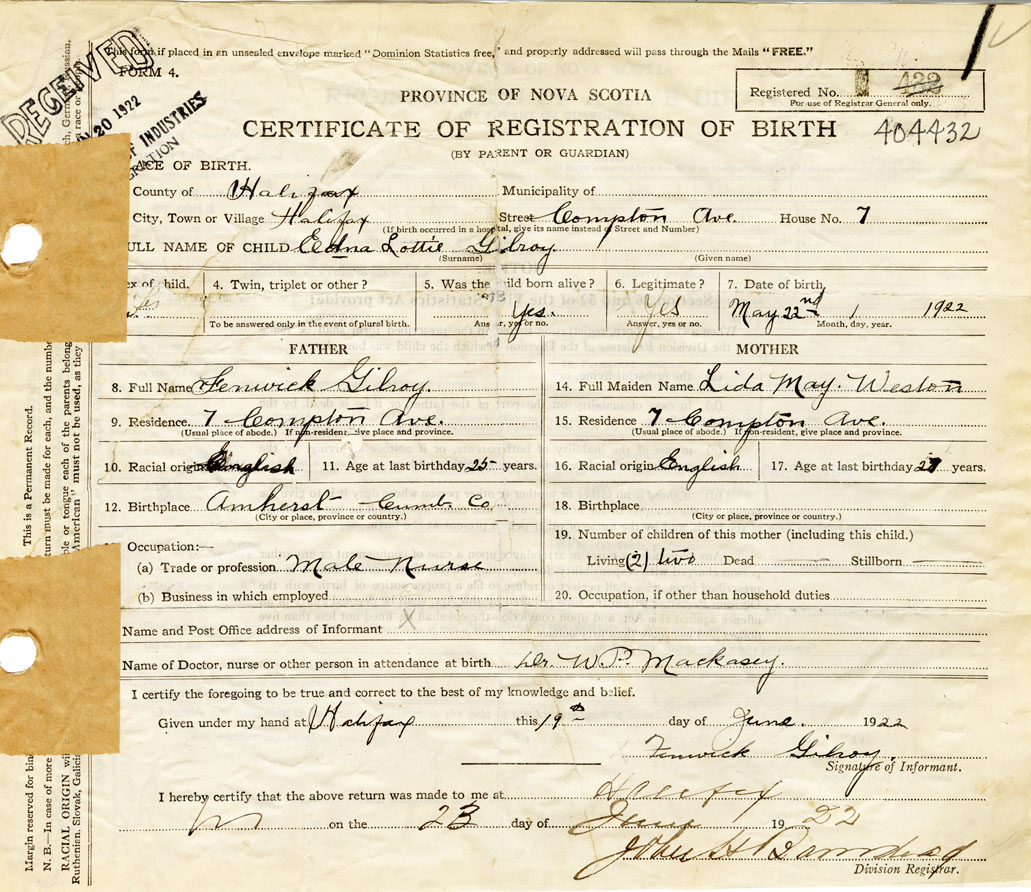 This form if placed in an unsealed envelope marked "Dominion Statistics free," and properly addressed will pass through the Mails "FREE."
RECEIVED
20 1922
INDUSTRIES
FORM 4.
Registered No. 422
For use of Registrar General only.
404432
PROVINCE OF NOVA SCOTIA
CERTIFICATE OF REGISTRATION OF BIRTH
(BY PARENT OR GUARDIAN)
CE OF BIRTH.
County of Halifax Municipality of
City, Town or Village Halifax Street Compton Ave. House No. 7
(If birth occurred in a hospital, give its name instead of Street and Number)
ULL NAME OF CHILD Edna Lottie Gilroy
(Surname) (Given name)
ex of child. 4. Twin, triplet or other? 5. Was the child born alive? 6. Legitimate? 7. Date of birth
Yes. Yes May 22nd 1922
To be answered only in the event of plural birth. Answer, yes or no. Answer, yes or no. Month, day, year.
FATHER MOTHER
8. Full Name Fenwick Gilroy. 14. Full Maiden Name Lida May. Weston
9. Residence. 7 Compton Ave. 15. Residence 7 Compton Ave.
(Usual place of abode.) If non-resident, give place and province. (Usual place of abode.) If non-resident, give place and province.
10. Racial origin English 11. Age at last birthday 25 years. 16. Racial origin English 17. Age at last birthday years.
12. Birthplace Amherst Cumb. Co. 18. Birthplace
(City or place, province or country.) (City or place, province or country.)
19. Number of children of this mother (including this child.)
Occupation:—
(a) Trade or profession Male Nurse Living (2) two Dead Stillborn
(b) Business in which employed 20. Occupation, if other than household duties
Name and Post Office address of Informant X
Name of Doctor, nurse or other person in attendance at birth Dr. W. P. Mackasey.
I certify the foregoing to be true and correct to the best of my knowledge and belief.
Given under my hand at Halifax this 19th day of June. 1922
Fenwick Gilroy
Signature of Informant.
I hereby certify that the above return was made to me at Halifax
on the 23 day of June 19 22
John H
Division Registrar.
This is a Permanent Record.
Margin reserved for bin
N. B.—In case of more
turn must be made for each, and the numbe
RACIAL ORIGIN wil
ple or tongue each of the parents belong
Ruthenian, Slovak, Galicia
American" must not be used, as they